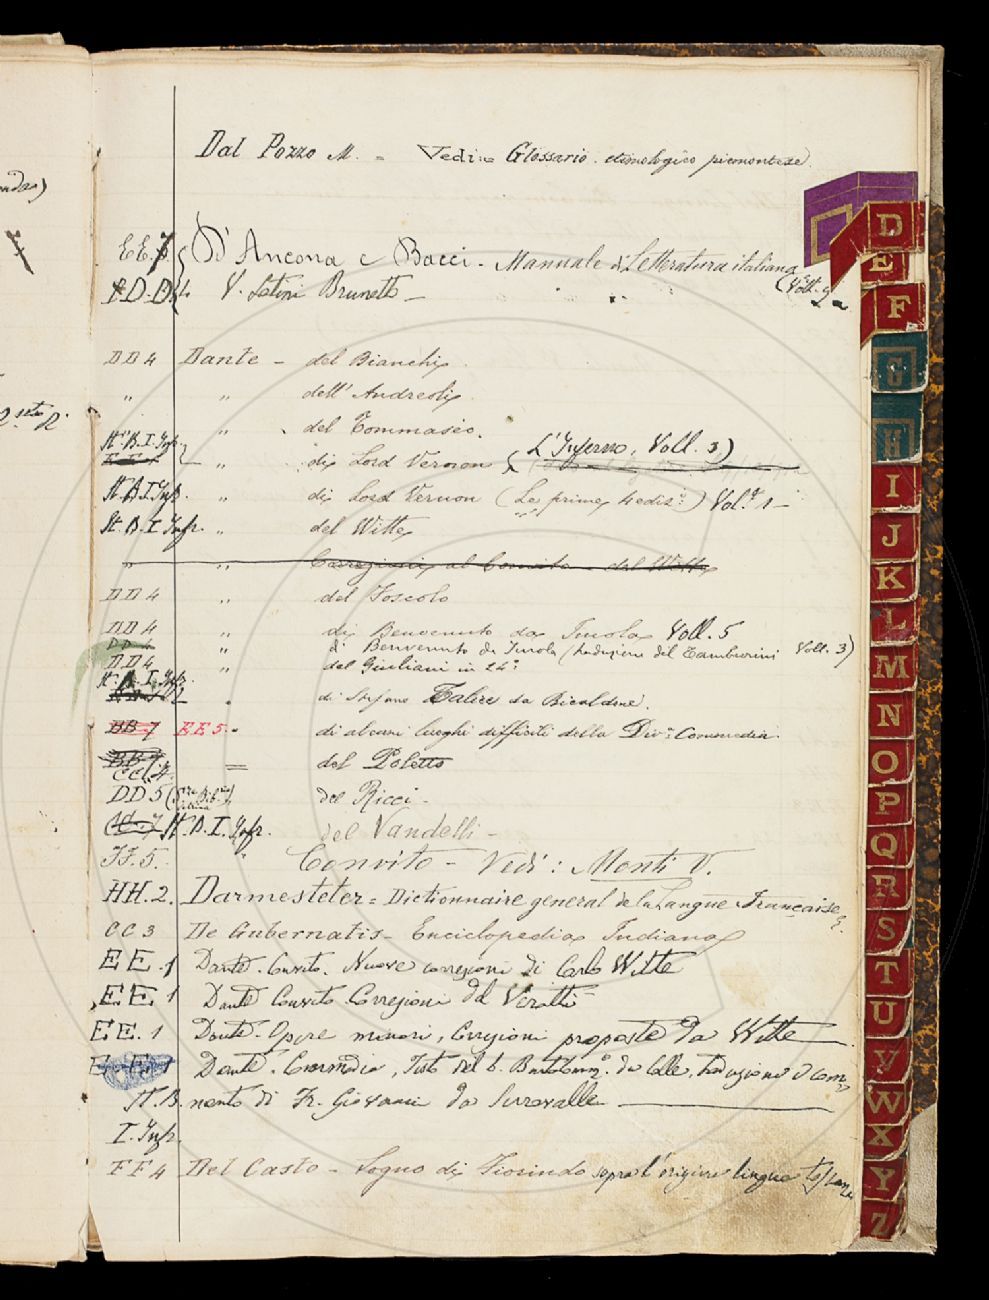 Dal Pozzo M. = Vedi = Glossario etimologico piemontese.
EE. D'Ancona e Bacci - Manuale di Letteratura italiana
V. Latini Brunetto -
DD 4 Dante - del Bianchi
" " dell' Andreoli
" del Tommaseo.
St. B. I. Infr. " di Lord Vernon (L'Inferno, Voll. 3)
St. B. I. Infr. " di Lord Vernon (Le prime 4 ediz.i) Vol. 1 -
St. B. I. Infr. " del Witte
" " Correzioni al Convito - del Witte
DD 4 " del Foscolo
DD 4 " di Benvenuto da Imola Voll. 5
DD 4 " di Benvenuto da Imola (traduzione del Tamburini Voll. 3)
DD 4 " del Giuliani in 24°
St. B. I. Infr. di Stefano Talice da Ricaldone.
BB 7 EE 5. " di alcuni luoghi difficili della Div. Commedia.
BB 7 = del Poletto
CC.
DD 5 del Ricci -
St. B. I. Infr. del Vandelli -
FF. 5. " Convito - Vedi: Monti V.
HH. 2. Darmesteter = Dictionnaire general de la Langue Française
CC 3 De Gubernatis - Enciclopedia Indiana
EE. 1 Dante. Convito. Nuove correzioni di Carlo Witte
EE. 1 Dante Convito. Correzioni del Veratti
EE. 1 Dante. Opere minori, Correzioni proposte da Witte
EE 1 Dante. Commedia, Testo del b. Bartolomm.o da Colle, traduzione e com=
St. B. mento di Fr. Giovanni da Serravalle
I. Infr.
FF 4 Del Casto - Sogno di Fiorindo sopra l'origine lingua toscana
D
E
F
G
H
I
J
K
L
M
N
O
P
Q
R
S
T
U
V
W
X
Y
Z